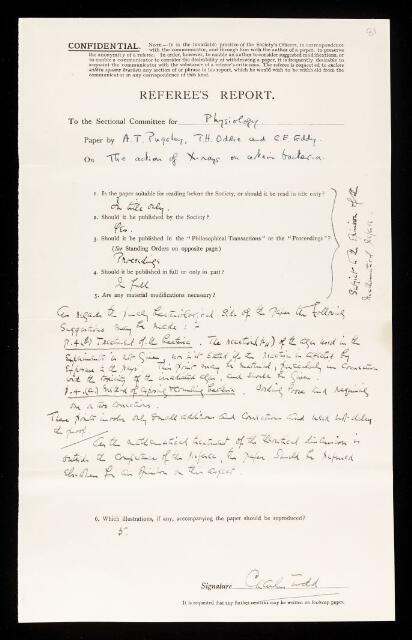 81
CONFIDENTIAL. NOTE.—It is the invariable practice of the Society's Officers, in correspondence
with the communicator, and through him with the author of a paper, to preserve
the anonymity of a referee. In order, however, to enable an author to consider suggested modifications, or
to enable a communicator to consider the desirability of withdrawing a paper, it is frequently desirable to
acquaint the communicator with the substance of a referee's criticisms. The referee is requested to enclose
within square brackets any section of or phrase in his report, which he would wish to be withheld from the
communicator in any correspondence of this kind.
REFEREE'S REPORT.
To the Sectional Committee for Physiology
Paper by A.T. Pugsley, T.H. Oddie and C.E. Eddy.
On The action of X-rays on certain bacteria.
1. Is the paper suitable for reading before the Society, or should it be read in title only?
In title only.
2. Should it be published by the Society?
Yes.
3. Should it be published in the "Philosophical Transactions" or the "Proceedings"?
(See Standing Orders on opposite page.)
Proceedings
4. Should it be published in full or only in part?
In full
5. Are any material modifications necessary?
Subject to the opinion of the
mathematical referee.
As regards the purely bacteriological side of the paper the following
suggestions may be made :
p.4.(b) Treatment of the bacteria. The reaction (pH) of the agar used in the
experiments is not given, nor is it stated if the reaction is affected by
exposure to the rays. This point may be material, particularly in connection
with the toxicity of the irradiated agar, and should be given.
p.4.(c) Method of exposing & counting bacteria. Wording loose and requiring
one or two corrections.
These points involve only small additions and corrections and need not delay
the proof.
As the mathematical treatment of the theoretical discussion is
outside the competence of the referee, the paper should be referred
elsewhere for an opinion on this aspect.
6. Which illustrations, if any, accompanying the paper should be reproduced?
5.
Signature Charles Todd
It is requested that any further remarks may be written on foolscap paper.